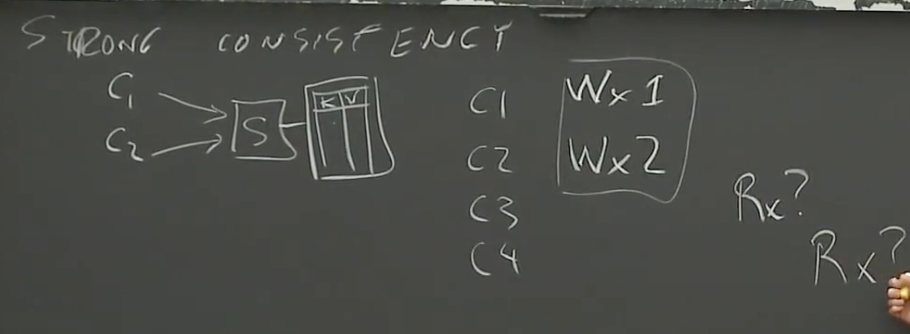 STRONG CONSISTENCY
C1
C2
S
K V
C1 Wx1
C2 Wx2
C3 Rx?
C4 Rx?